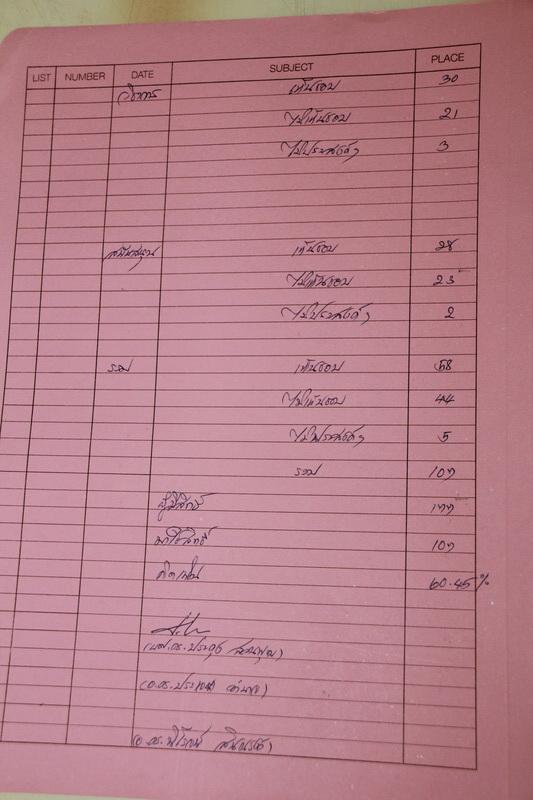 LIST NUMBER DATE SUBJECT PLACE
วิชาการ เห็นชอบ 30
ไม่เห็นชอบ 21
ไม่ประสงค์ฯ 3
สนับสนุน เห็นชอบ 28
ไม่เห็นชอบ 23
ไม่ประสงค์ฯ 2
รวม เห็นชอบ 58
ไม่เห็นชอบ 44
ไม่ประสงค์ฯ 5
รวม 107
ผู้มีสิทธิ์ 177
มาใช้สิทธิ์ 107
คิดเป็น 60.45%
(ผศ.ดร.
(อ.ดร.
(อ.ดร.